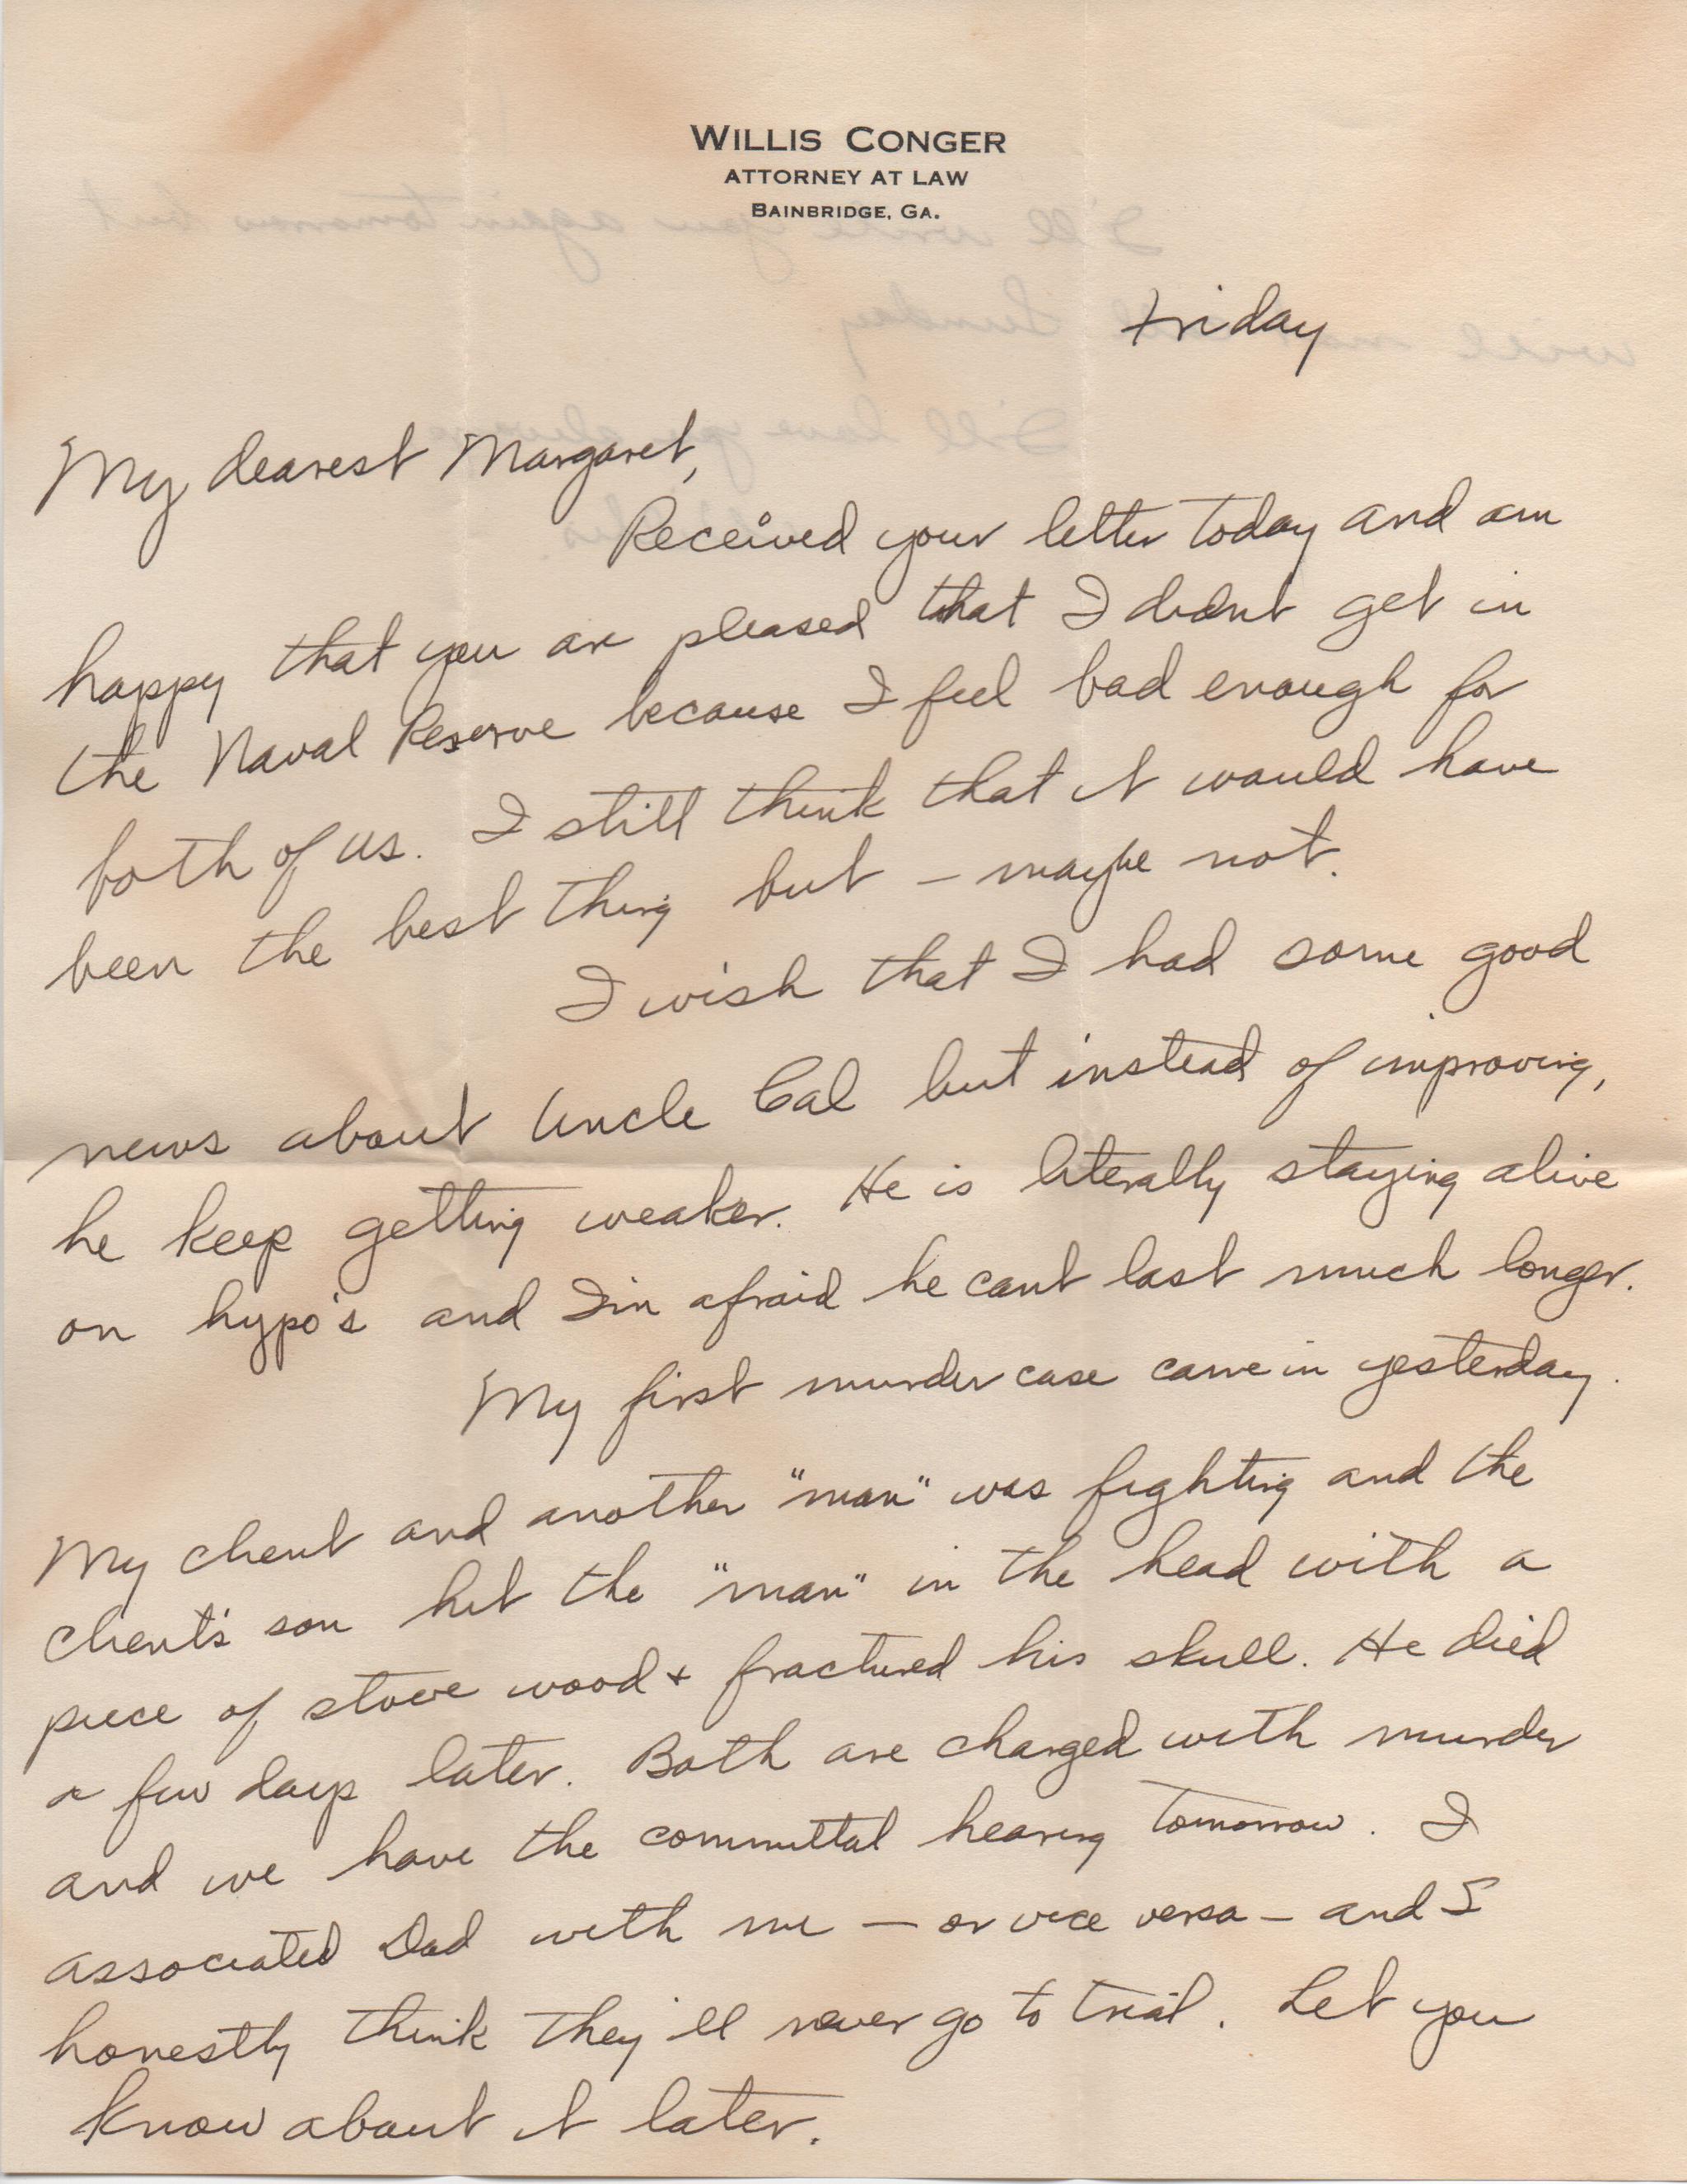 WILLIS CONGER
ATTORNEY AT LAW
BAINBRIDGE, GA.
Friday
My dearest Margaret,
Received your letter today and am
happy that you are pleased that I didn't get in
the Naval Reserve because I feel bad enough for
both of us. I still think that it would have
been the best thing but – maybe not.
I wish that I had some good
news about Uncle Cal but instead of improving,
he keep getting weaker. He is literally staying alive
on hypo's and I'm afraid he cant last much longer.
My first murder case came in yesterday.
My client and another "man" was fighting and the
client's son hit the "man" in the head with a
piece of stove wood & fractured his skull. He died
a few days later. Both are charged with murder
and we have the committal hearing tomorrow. I
associated Dad with me – or vice versa – and I
honestly think they'll never go to trial. Let you
know about it later.